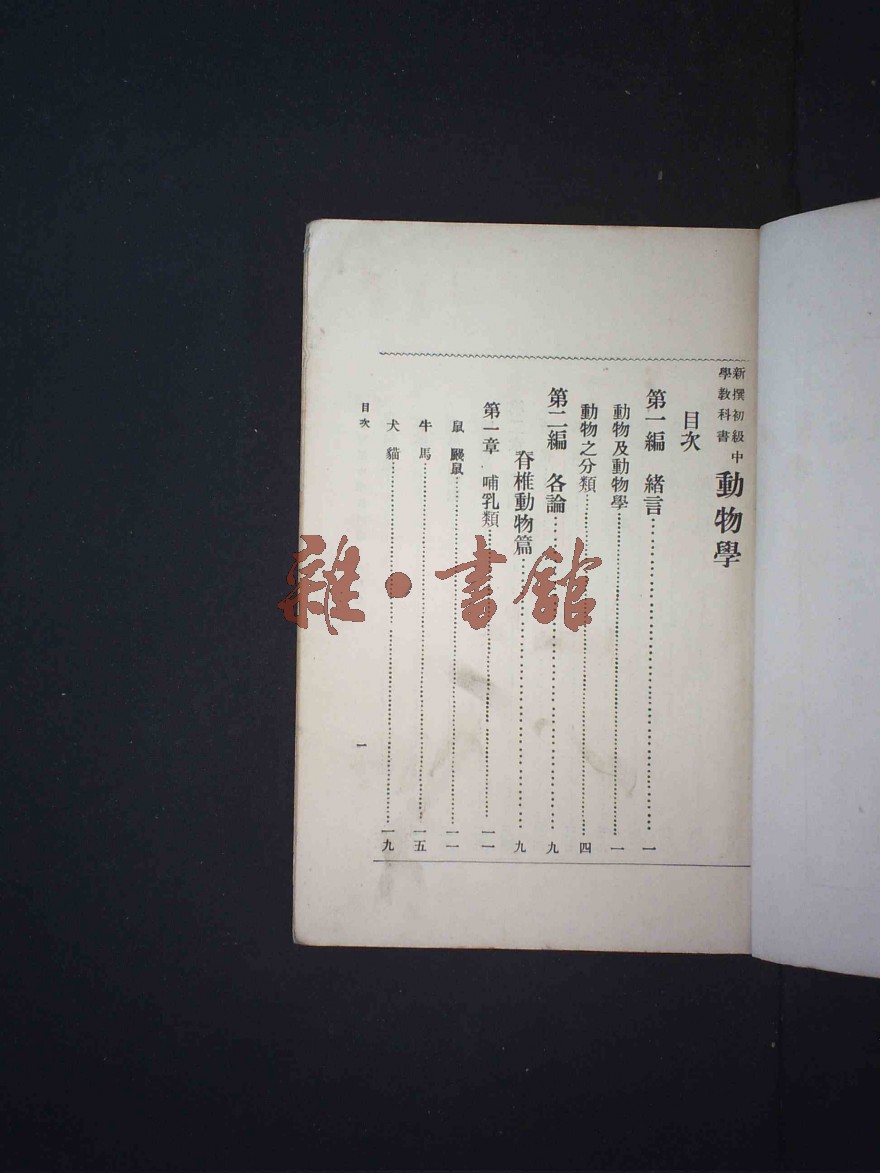 新撰初級中
學教科書
動物學
目次
第一編 緒言……一
動物及動物學……一
動物之分類……四
第二編 各論……九
脊椎動物篇……九
第一章 哺乳類……一一
鼠 鼴鼠……一一
牛 馬……一五
犬 貓……一九
目次
一
雜·書館